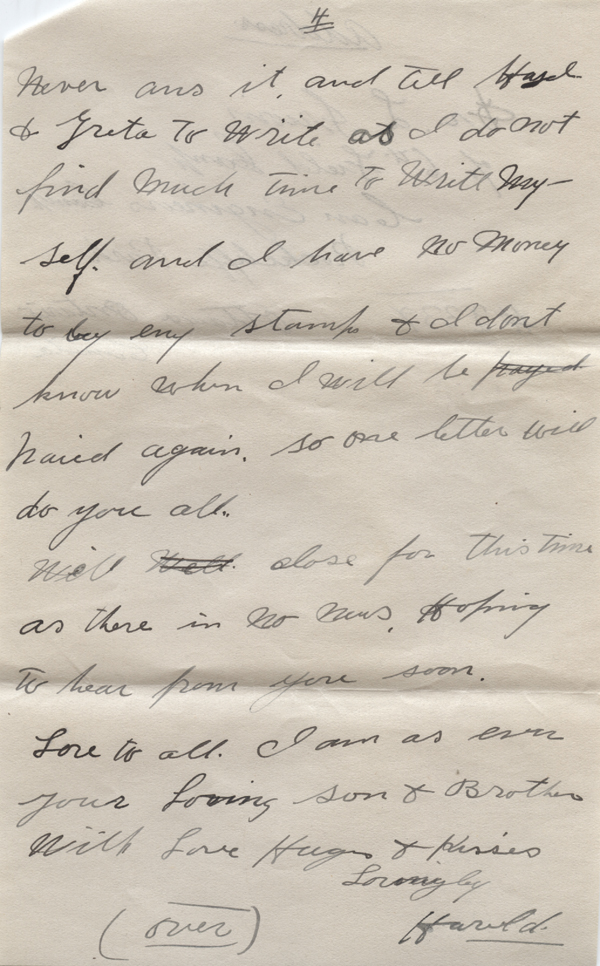 4
Never ans it, and tell Hazel
& Greta To Write as I do not
find Much time To Write My-
self. and I have No Money
to by eny stamps & I dont
know when I will be payed
paied again. so one letter will
do you all.
Will Well. close for this time
as there in No News. Hoping
To hear from you soon.
Love to all. I am as ever
your Loving son & Brother
With Love Hugs & Kisses
Lovingly
(over) Harold.